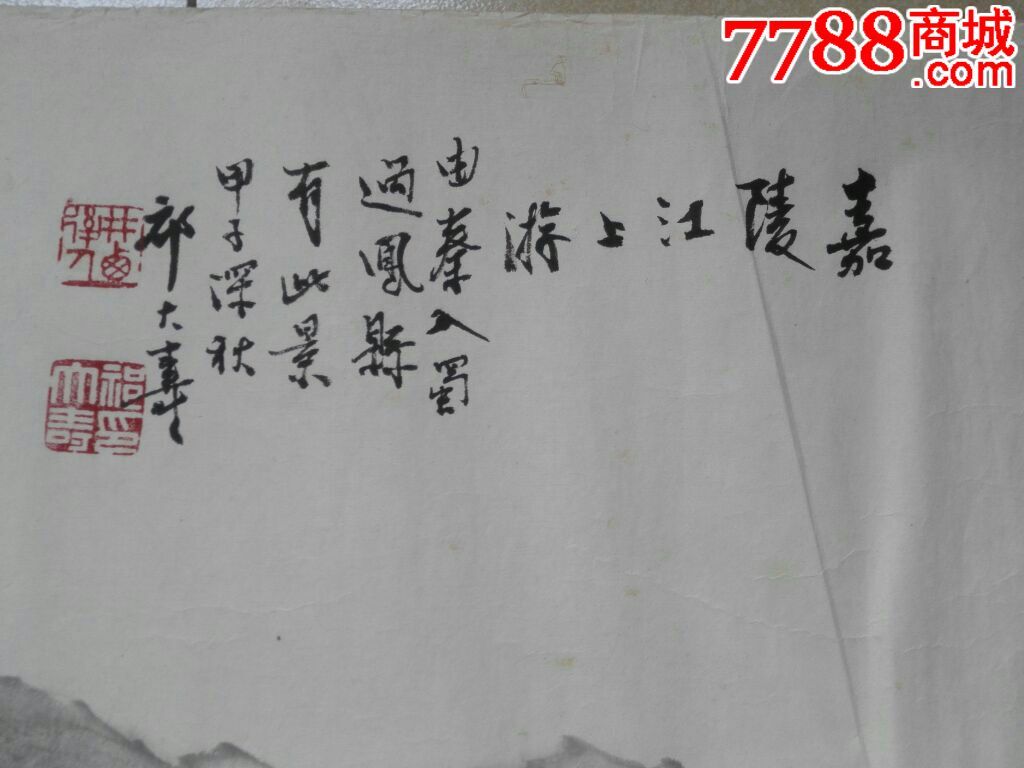 嘉陵江上游
由秦入蜀
過鳳縣
有此景
甲子深秋
祁大壽
7788商城
.com